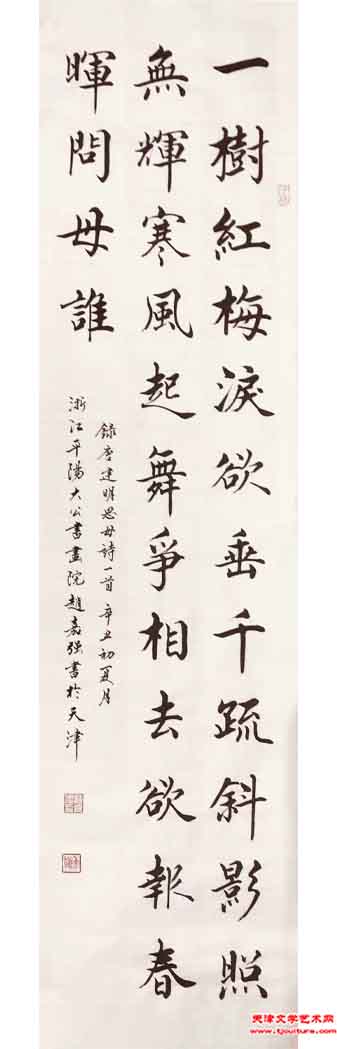 一樹紅梅淚欲垂千疏斜影照
無輝寒風起舞爭相去欲報春
暉問母誰
錄唐建明思母詩一首 辛丑初夏月
浙江平陽大公書畫院趙嘉強書於天津
天津文学艺术网
www.tjculture.com